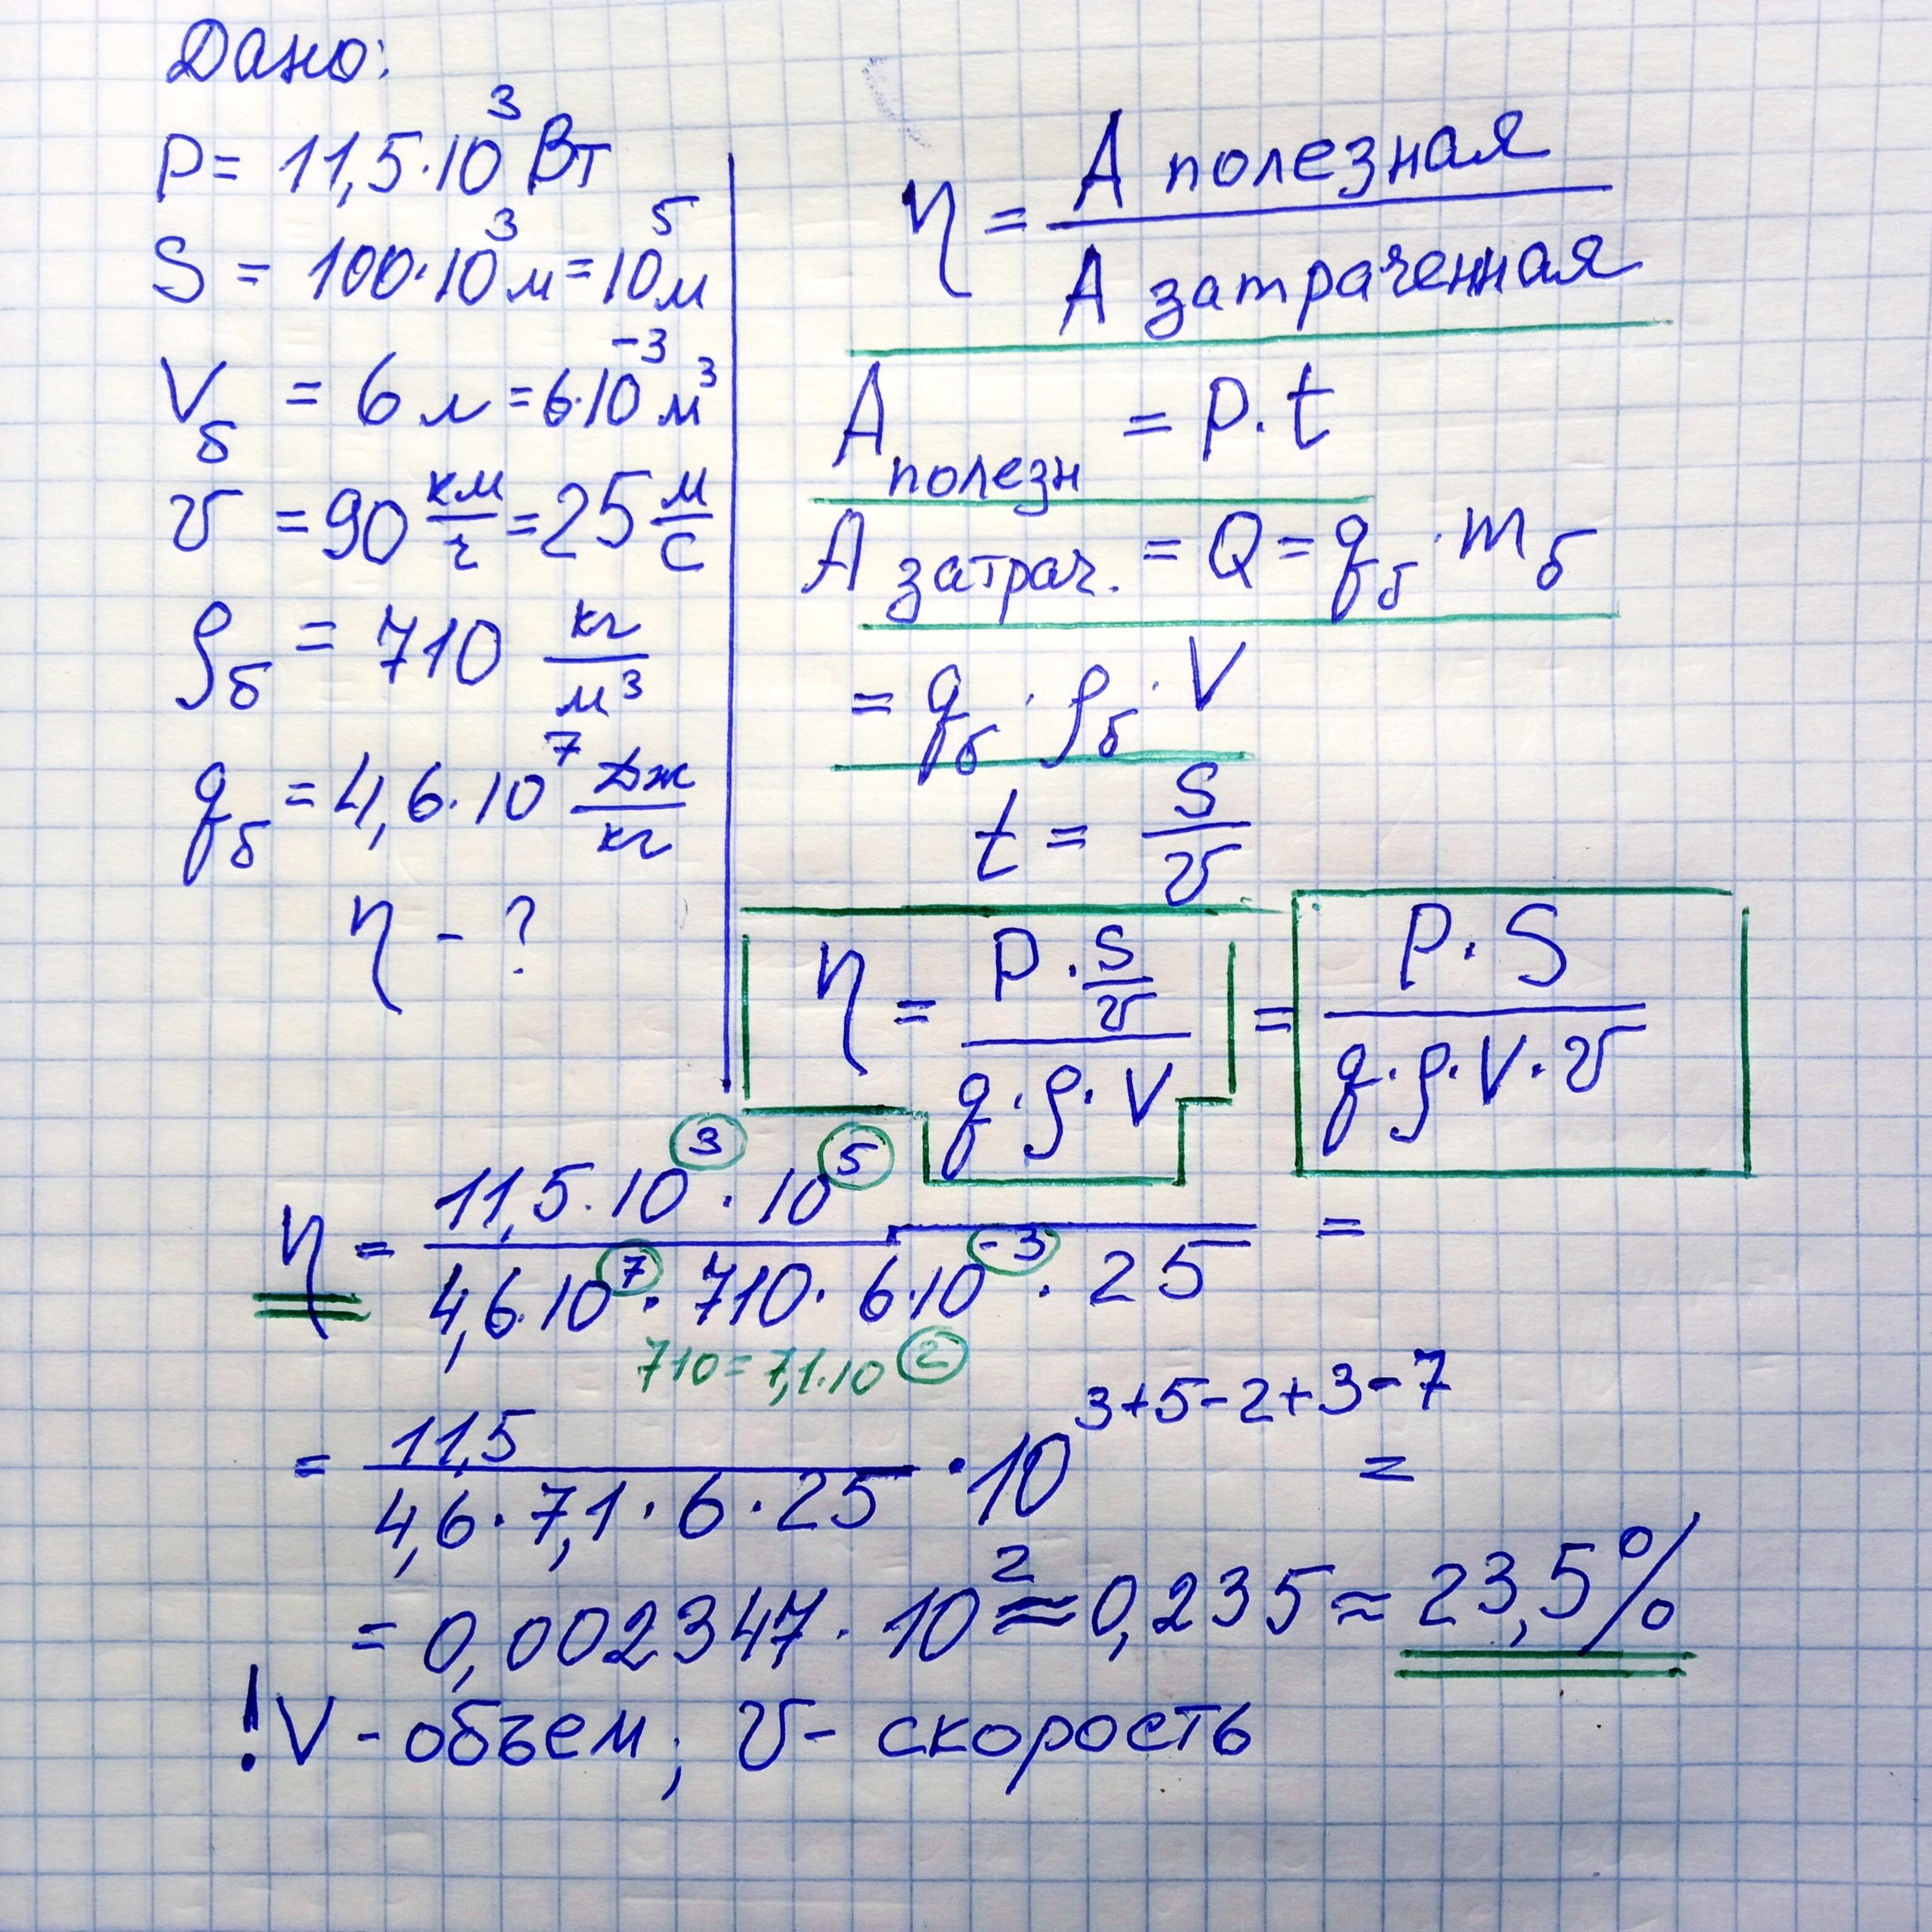 Дано:
P = 11,5·10³ Вт
S = 100·10³ м = 10⁵ м
V_б = 6 л = 6·10⁻³ м³
v = 90 км/ч = 25 м/с
ρ_б = 710 кг/м³
q_б = 4,6·10⁷ Дж/кг
η - ?
η = A полезная / A затраченная
A полезн = P·t
A затрач. = Q = q_б · m_б
= q_б · ρ_б · V
t = S/v
η = (P · S/v) / (q·ρ·V) = (P·S) / (q·ρ·V·v)
η = (11,5·10³ · 10⁵) / (4,6·10⁷ · 710 · 6·10⁻³ · 25) =
710 = 7,1·10²
= 11,5 / (4,6·7,1·6·25) · 10³⁺⁵⁻²⁺³⁻⁷ =
= 0,002347 · 10² ≈ 0,235 ≈ 23,5%
! V - объем; v - скорость